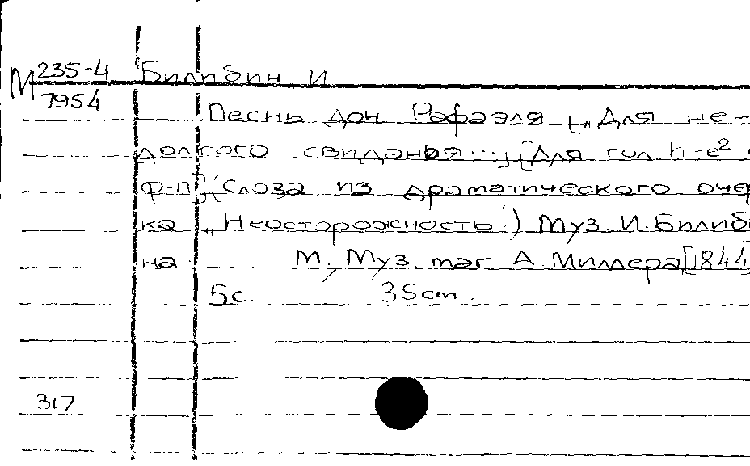 М 235-4 Билибин И.
7954
Песнь дон Рафаэля „Для не-
долгого свиданья...“ [Для гол. h-e² с
ф-п] (Слова из драматического очер
ка „Неосторожность“) Муз. И. Билиби
на М., Муз. маг. А. Миллера [1844]
5с. 35cm.
317